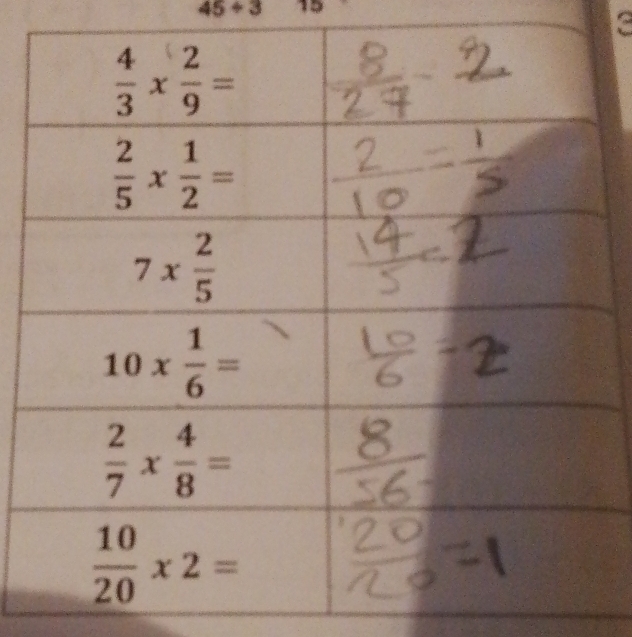 45 ÷ 3 15
3
4/3 x 2/9 = 8/27 - 2
2/5 x 1/2 = 2/10 = 1/5
7 x 2/5 14/5 = 2
10 x 1/6 = 10/6 - 2
2/7 x 4/8 = 8/56
10/20 x 2 = 20/20 = 1